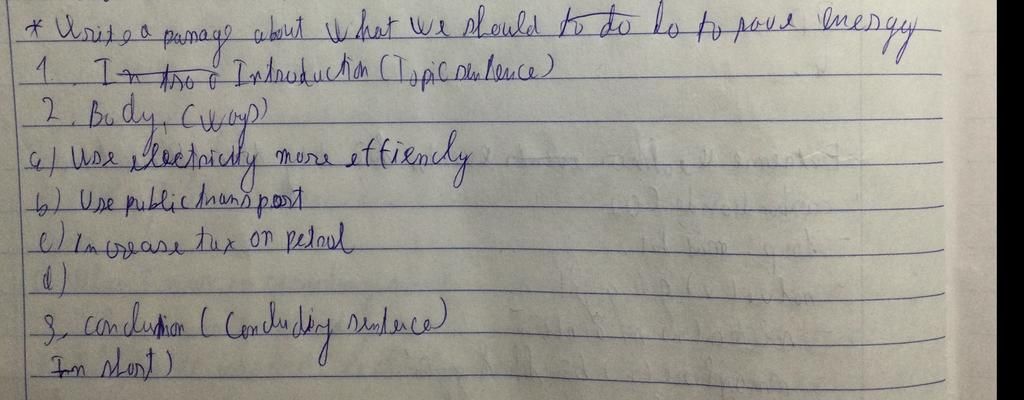 * Write a passage about what we should to do do to save energy
1. Intro o Introduction (Topic sentence)
2. Body, (ways)
a) Use electricity more effiency
b) Use public transport
c) Increase tax on petrol
d)
3, conclusion (Concluding sentence)
In short)